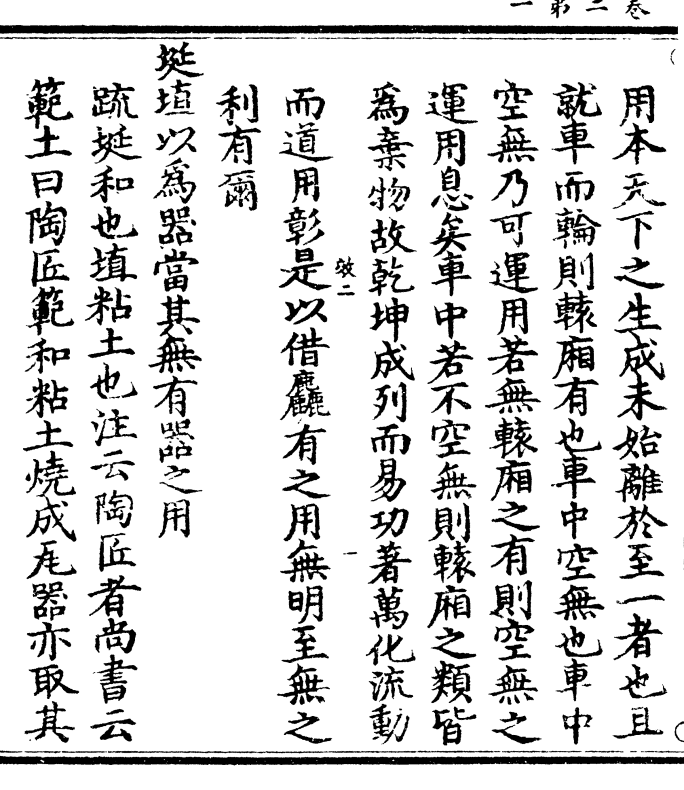 用本无下之生成未始離於至一者也且
就車而輪則轅廂有也車中空無也車中
空無乃可運用若無轅廂之有則空無之
運用息矣車中若不空無則轅廂之類皆
為棄物故乾坤成列而易功著萬化流動
而道用彰是以借麤有之用無明至無之
利有爾
埏埴以為器當其無有器之用
䟽埏和也埴粘土也注云陶匠者尚書云
範土曰陶匠範和粘土燒成瓦器亦取其